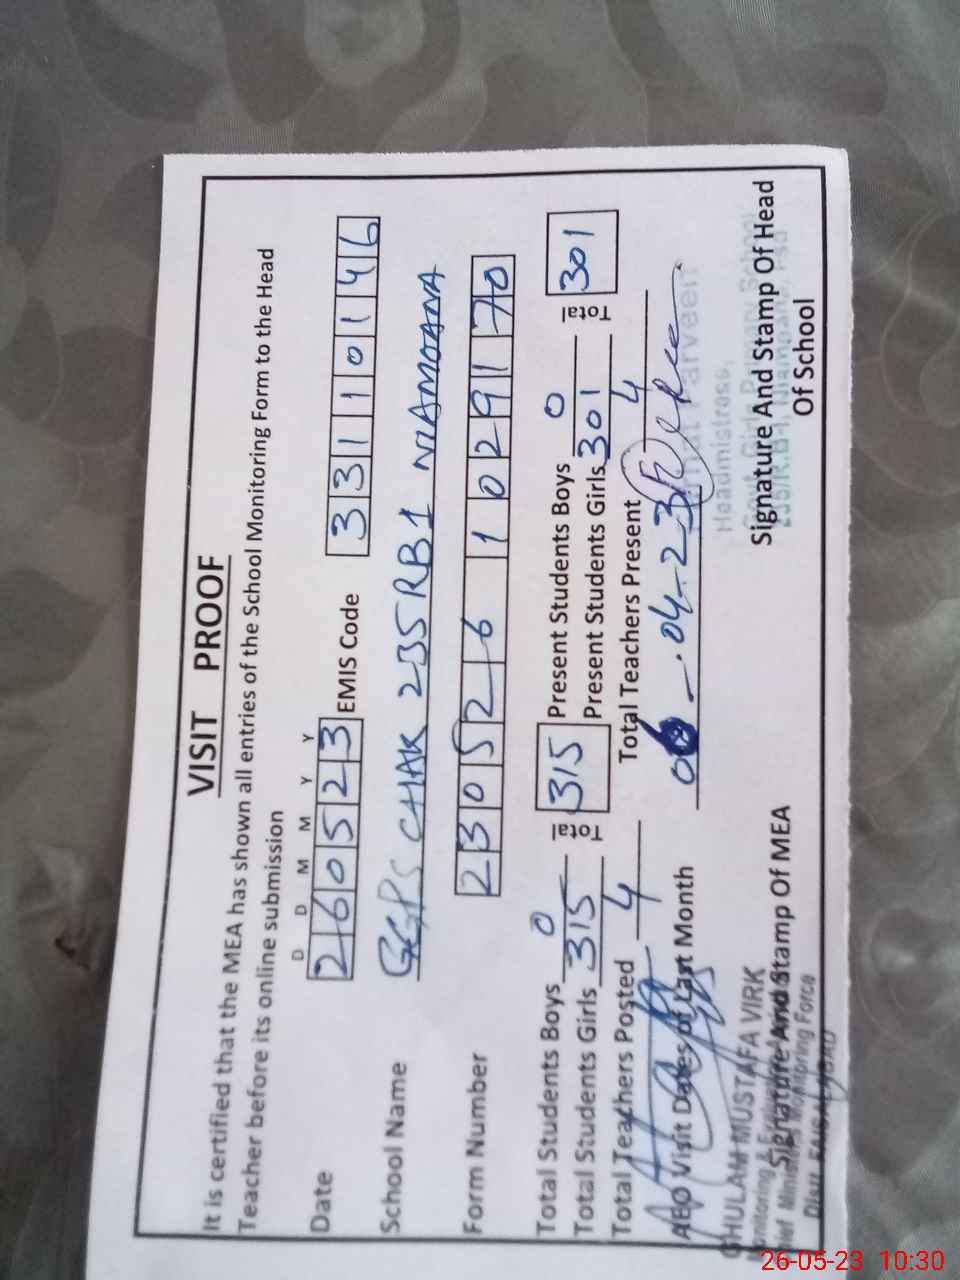 VISIT PROOF
It is certified that the MEA has shown all entries of the School Monitoring Form to the Head
Teacher before its online submission
D D M M Y Y
Date 260523 EMIS Code 33110146
School Name GGPS CHAK 235RB1 NIAMOANA
Form Number 230526 1029170
Total Students Boys 0 Present Students Boys 0
Total Students Girls 315 Total 315 Present Students Girls 301 Total 301
Total Teachers Posted 4 Total Teachers Present 4
AEO Visit Dates of Last Month 06-.04-23
GHULAM MUSTAFA VIRK
Monitoring &
Chief Minister's Monitoring Force
Distt. FAISALABAD
Signature And Stamp Of MEA
Parveen
Headmistress,
Govt. Girls Primary School
235/R.B-1, Niamoana, Fsd
Signature And Stamp Of Head
Of School
26-05-23 10:30